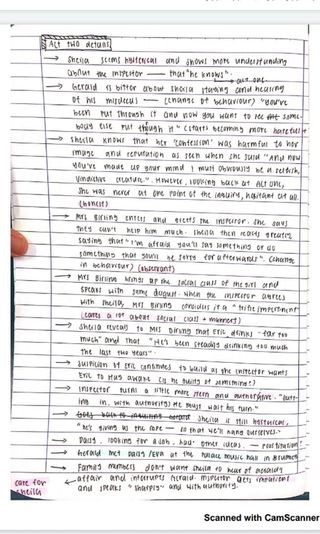 Act two details
→ Sheila seems hysterical and shows more understanding
about the inspector — that "he knows".
act one.
→ Gerald is bitter about Sheila staying and hearing
of his misdeeds — (change of behaviour) "You've
been put through it and now you want to see some-
body else put through it" (starts becoming more hateful)
→ Sheila knows that her "confession" was harmful to her
image and reputation as seen when she said "And now
you've made up your mind I must obviously be a selfish,
vindictive creature". However, looking back at act one,
she was never at one point of the inquiry, hesitant at all.
(honest)
→ Mrs Birling enters and greets the inspector. She says
they can't help him much. Sheila then reacts
saying that "I'm afraid you'll say something or do
something that you'll be sorry for afterwards". (change
in behaviour) (observant)
→ Mrs Birling brings up the social class of the girl and
speaks with some disgust. When the inspector agrees
with Sheila, Mrs Birling considers it a "trifle impertinent"
(cares a lot about social class + manners)
→ Sheila reveals to Mrs Birling that Eric drinks "far too
much" and that "He's been steadily drinking too much
the last two years".
→ Suspicion of Eric continues to build as the inspector wants
Eric to stay awake (is he guilty of something?)
→ Inspector turns a little more stern and authorative. "(cutt-
ing in, with authority) He must wait his turn."
→ Sheila is still hysterical,
"he's giving us the rope — so that we'll hang ourselves."
→ Daisy, looking for a job, had "other ideas" — prostitution
→ Gerald met Daisy/Eva at the palace music hall in Brumley
→ Family members don't want Sheila to hear of Gerald's
care for
Sheila
affair and interrupts Gerald. Inspector gets irritations
and speaks "sharply" and with authority.
Scanned with CamScanner